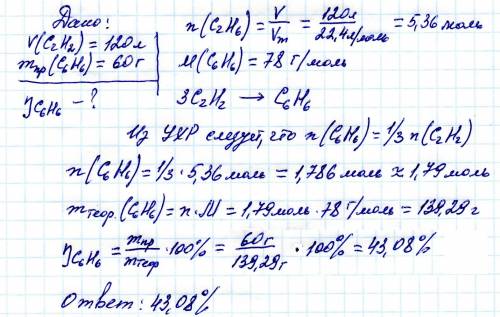 Дано:
V(C₂H₂) = 120 л
mпр(C₆H₆) = 60 г
η C₆H₆ – ?
n(C₂H₆) = V/Vm = 120 л/22,4 л/моль = 5,36 моль
M(C₆H₆) = 78 г/моль
3C₂H₂ → C₆H₆
Из УХР следует, что n(C₆H₆) = 1/3 n(C₂H₂)
n(C₆H₆) = 1/3 · 5,36 моль = 1,786 моль ≈ 1,79 моль
mтеор.(C₆H₆) = n · M = 1,79 моль · 78 г/моль = 139,29 г
η C₆H₆ = mпр/mтеор · 100% = 60 г/139,29 г · 100% = 43,08%
Ответ: 43,08%